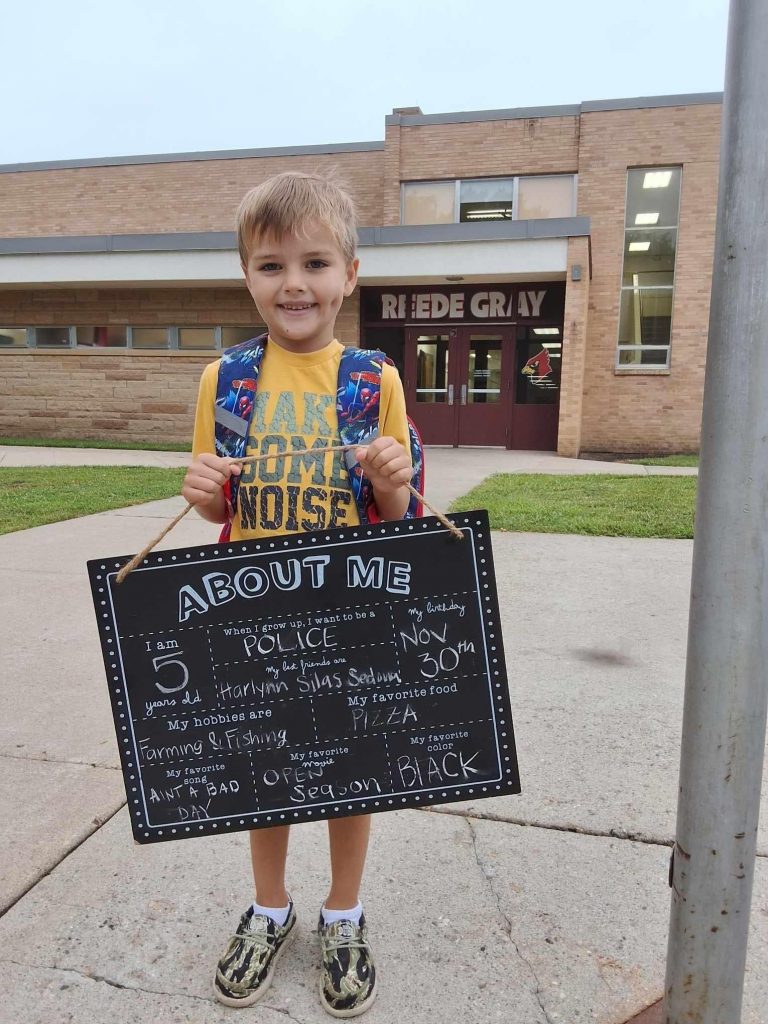 REEDE GRAY
MAKE
SOME
NOISE
ABOUT ME
I am
5
years old
When I grow up, I want to be a
POLICE
My best friends are
Harlynn Silas Sedona
My birthday
NOV
30th
My hobbies are
Farming & Fishing
My favorite food
PIZZA
My favorite
song
AINT A BAD
DAY
My favorite
movie
OPEN
Season
My favorite
color
BLACK